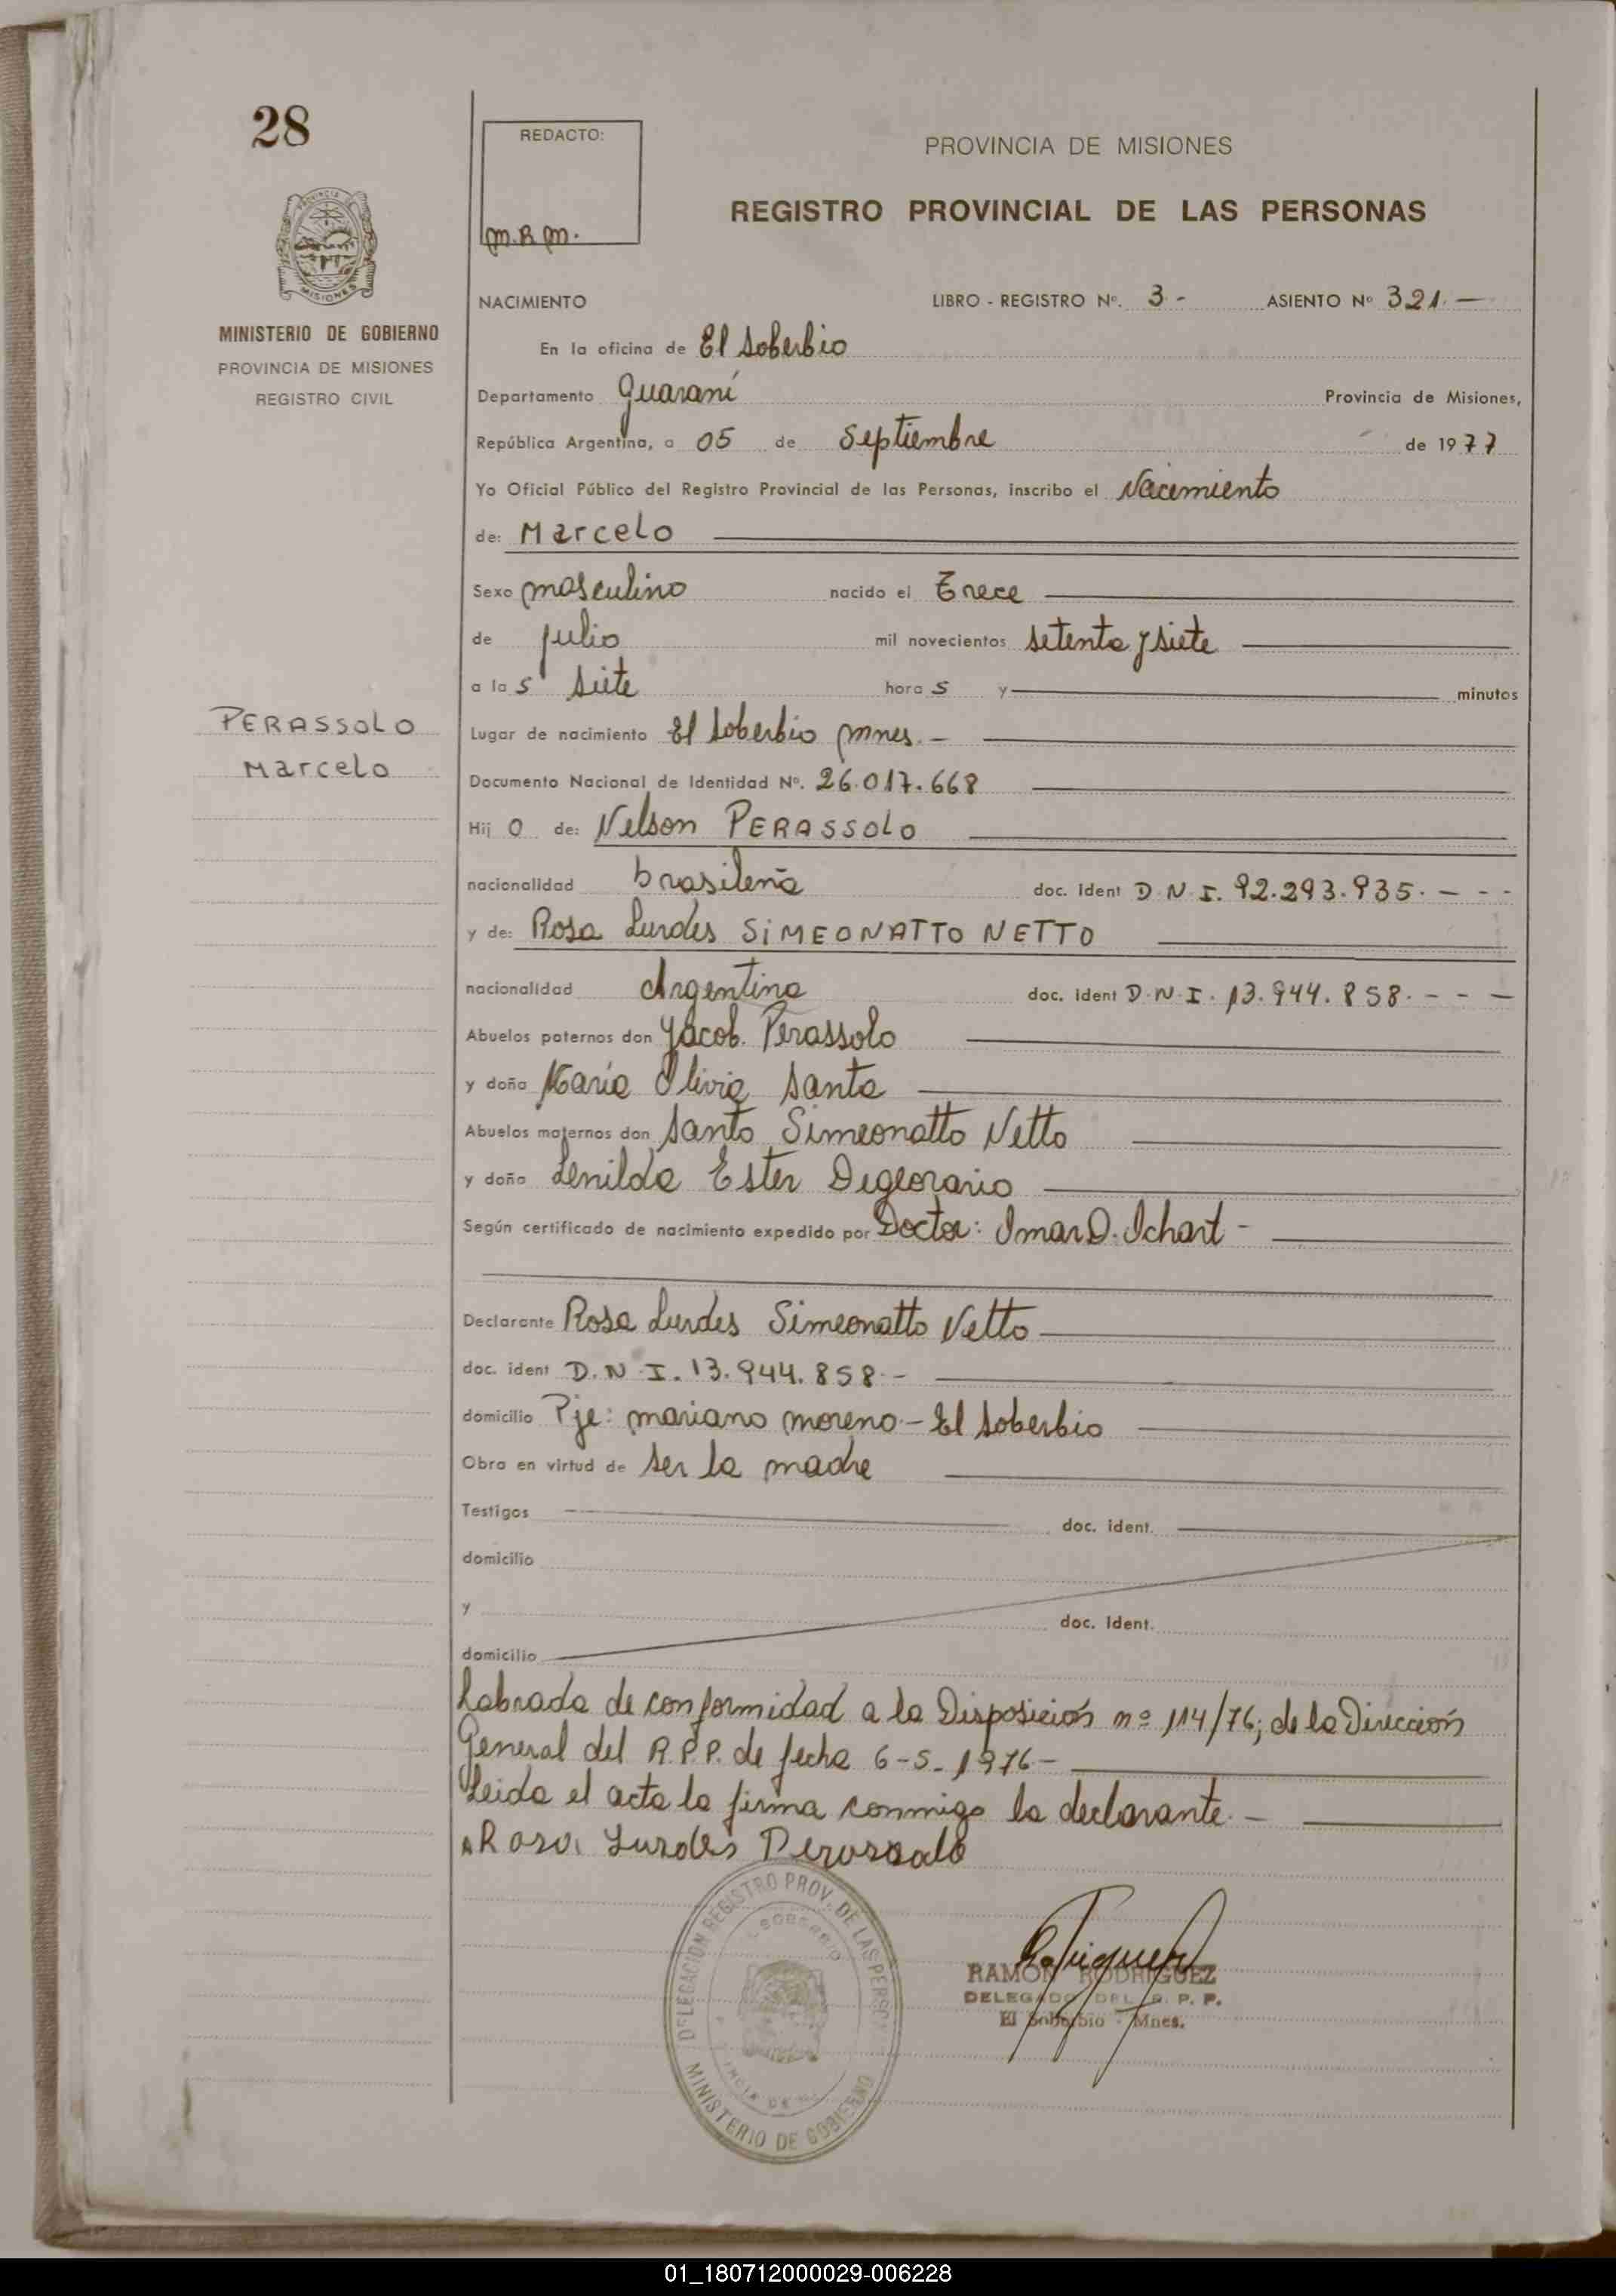 28
REDACTO:
m.R.m.
PROVINCIA DE MISIONES
REGISTRO PROVINCIAL DE LAS PERSONAS
MISIONES
MINISTERIO DE GOBIERNO
PROVINCIA DE MISIONES
REGISTRO CIVIL
NACIMIENTO LIBRO - REGISTRO Nº. 3 - ASIENTO Nº 321. —
En la oficina de El Soberbio
Departamento Guaraní Provincia de Misiones,
República Argentina, a 05 de Septiembre de 1977
Yo Oficial Público del Registro Provincial de las Personas, inscribo el Nacimiento
de: Marcelo
Sexo masculino nacido el Trece
de julio mil novecientos setenta y siete
a las siete horas y minutos
PERASSOLO
Marcelo
Lugar de nacimiento El Soberbio Mnes. -
Documento Nacional de Identidad Nº. 26.017.668
Hijo de: Nelson PERASSOLO
nacionalidad brasileña doc. ident D.N.I. 92.293.935. - - -
y de: Rosa Lurdes SIMEONATTO NETTO
nacionalidad Argentina doc. ident D.N.I. 13.944.858. - - -
Abuelos paternos don Yacob. Perassolo
y doña María Olivia Santa
Abuelos maternos don Santo Simeonatto Netto
y doña Lenilda Ester
Según certificado de nacimiento expedido por Doctor: Imar D. Ichart -
Declarante Rosa Lurdes Simeonatto Netto
doc. ident D.N.I. 13.944.858. -
domicilio Pje: mariano moreno - El Soberbio
Obra en virtud de ser la madre
Testigos doc. ident.
domicilio
y doc. ident.
domicilio
Labrada de conformidad a la Disposición nº 114/76; de la Dirección
General del R.P.P. de fecha 6-5-1976 -
Leida el acta la firma conmigo la declarante. -
Rosa Lurdes Perassolo
DELEGACION REGISTRO PROV. DE LAS PERSONAS
SOBERBIO
MINISTERIO DE GOBIERNO
RAMON RODRIGUEZ
DELEGADO DEL R. P. P.
El Soberbio - Mnes.
01_180712000029-006228